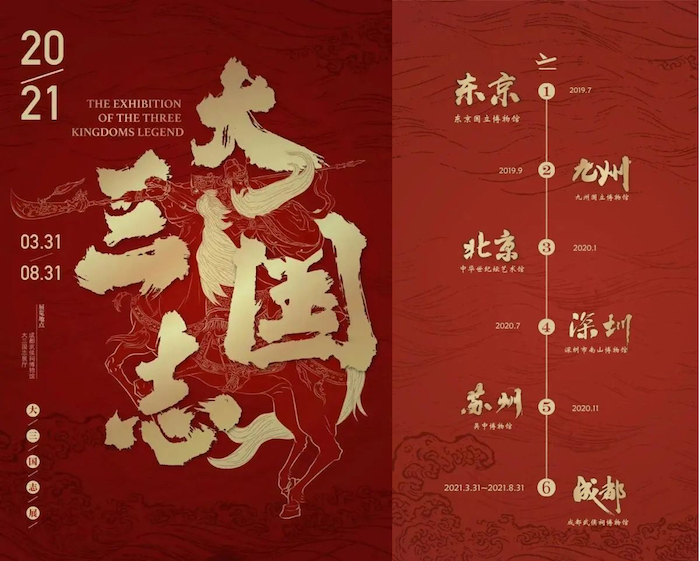 20
21
THE EXHIBITION
OF THE THREE
KINGDOMS LEGEND
大三国志
03.31
08.31
展览地点
成都武侯祠博物馆
大三国志展厅
大三国志展
1
东京
2019.7
东京国立博物馆
2019.9
2
九州
九州国立博物馆
北京
3
2020.1
中华世纪坛艺术馆
2020.7
4
深圳
深圳市南山博物馆
苏州
5
2020.11
吴中博物馆
2021.3.31~2021.8.31
6
成都
成都武侯祠博物馆